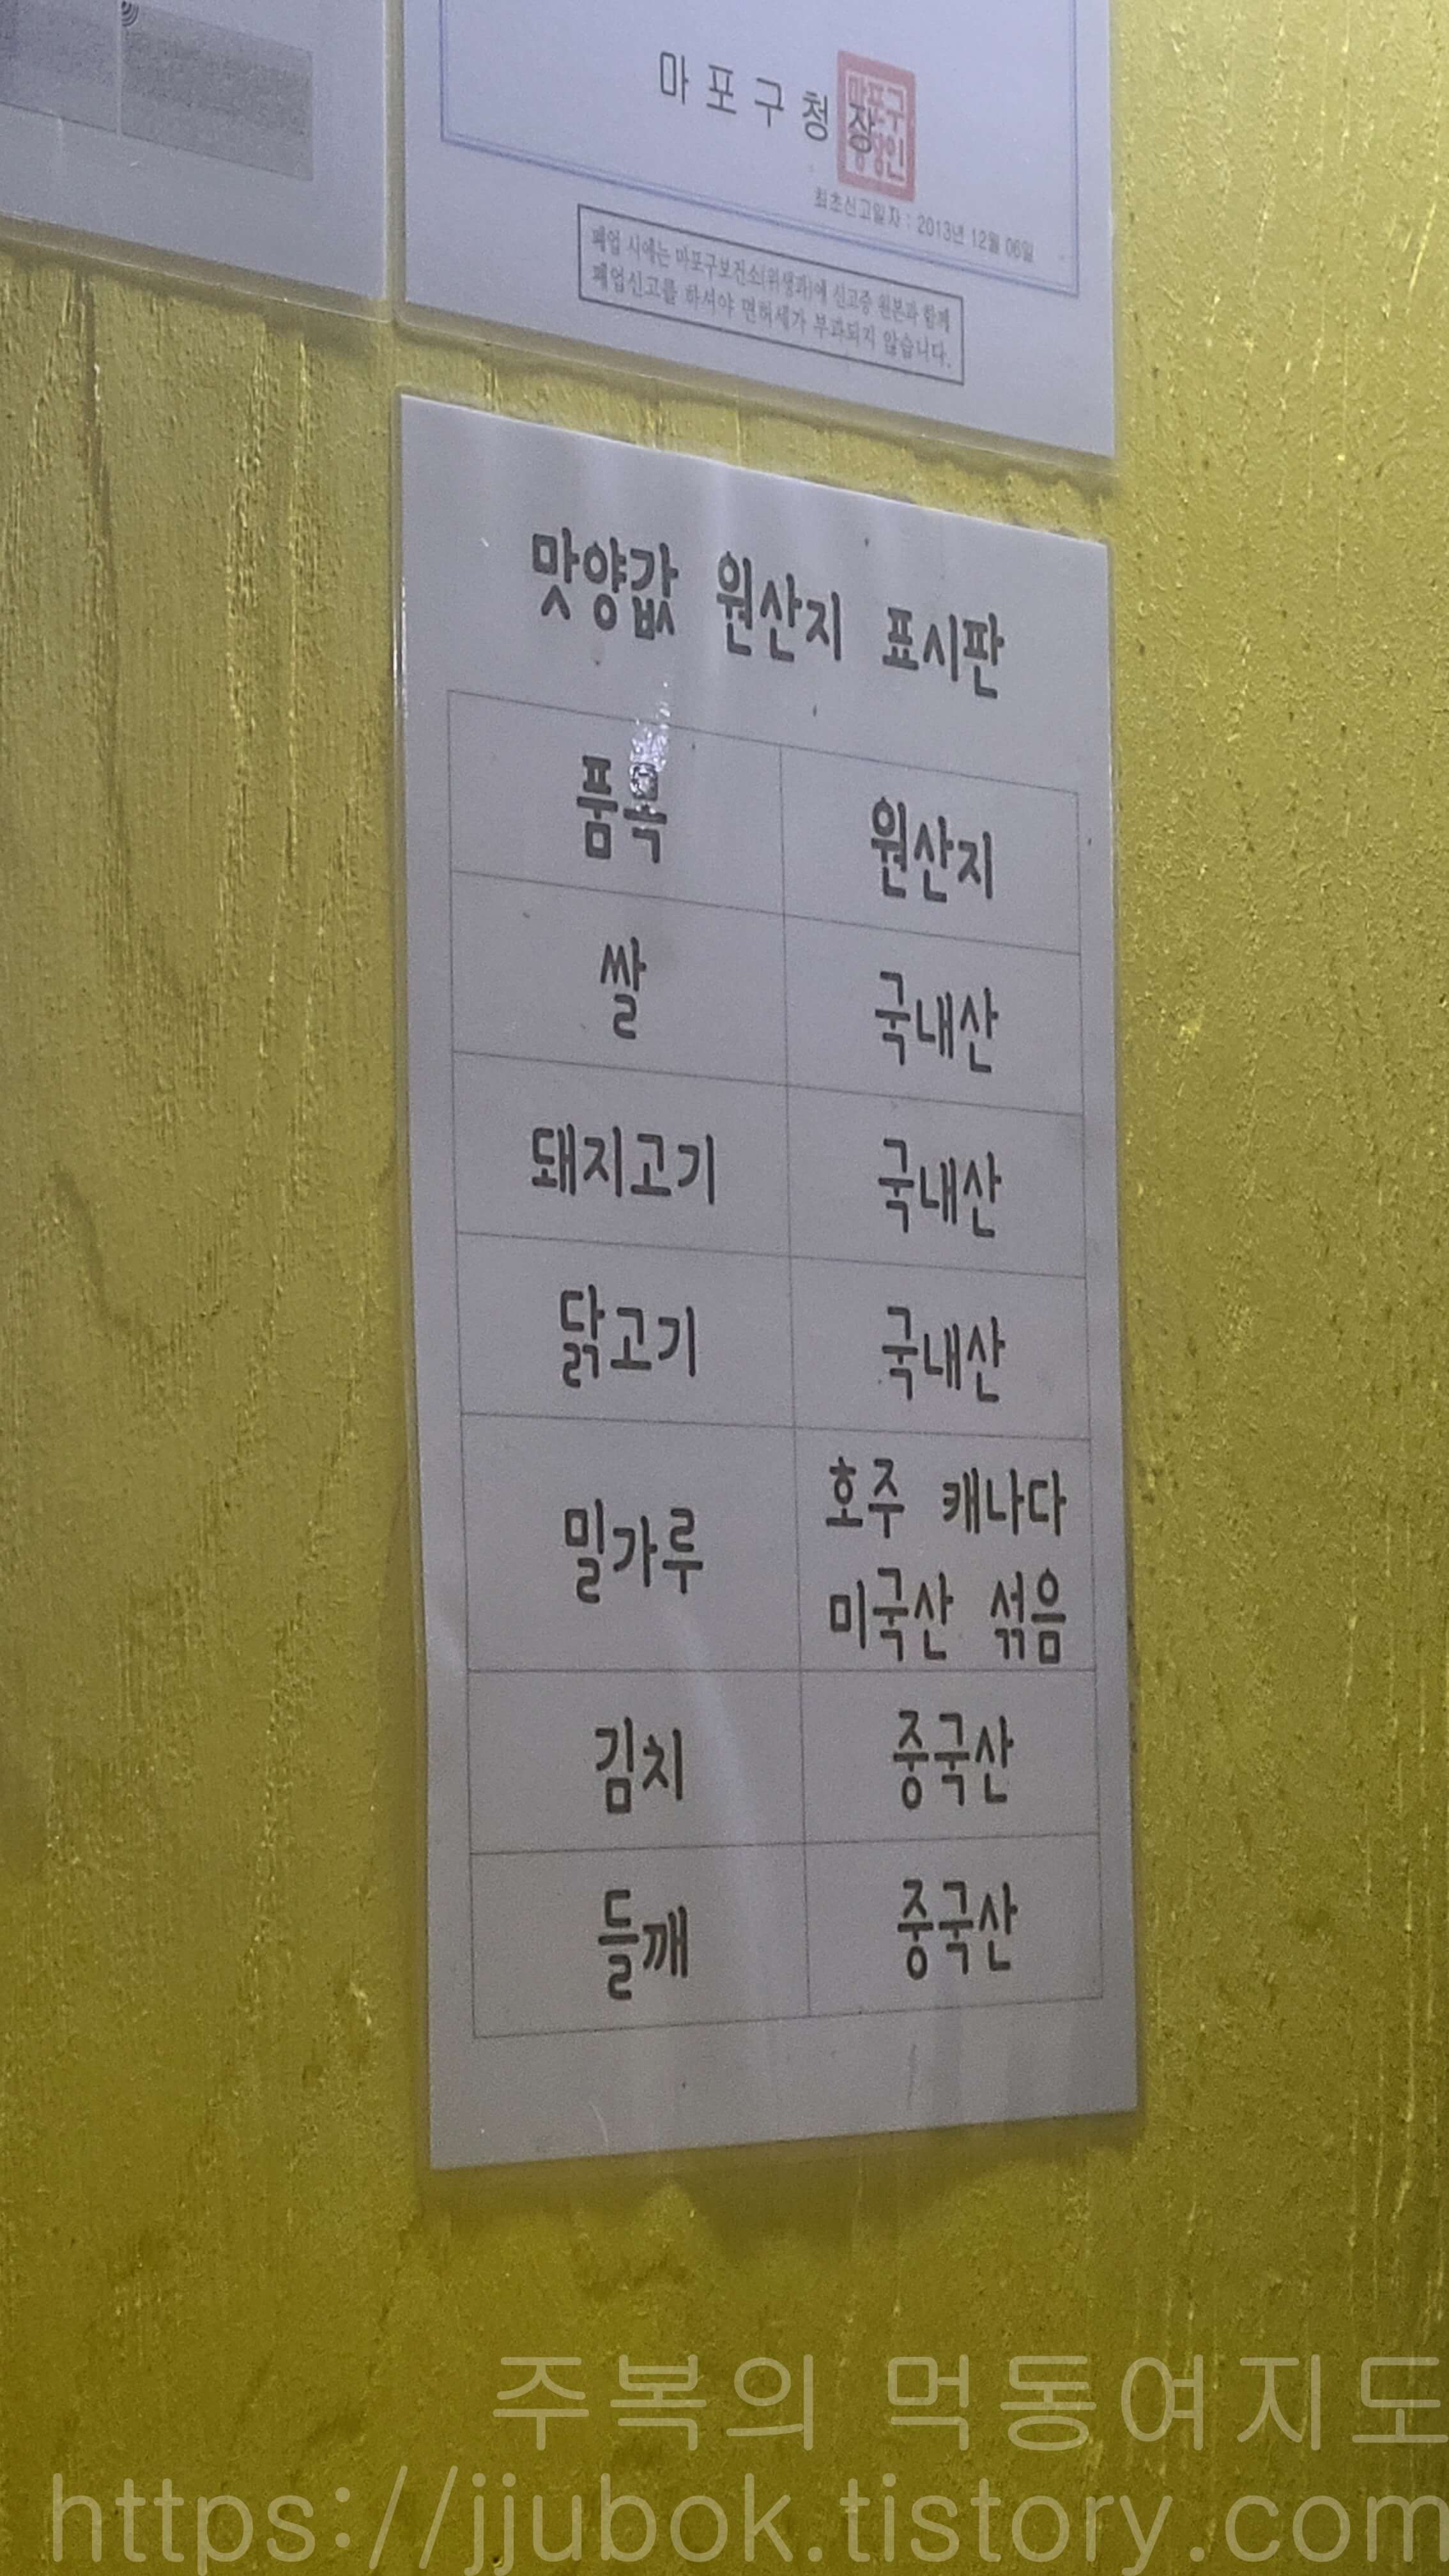 마포구청장
최초신고일자 : 2013년 12월 06일
폐업 시에는 마포구보건소(위생과)에 신고증 원본과 함께
폐업신고를 하셔야 면허세가 부과되지 않습니다.
맛양값 원산지 표시판
품목 원산지
쌀 국내산
돼지고기 국내산
닭고기 국내산
밀가루 호주 캐나다
미국산 섞음
김치 중국산
들깨 중국산
주복의 먹동여지도
https://jjubok.tistory.com